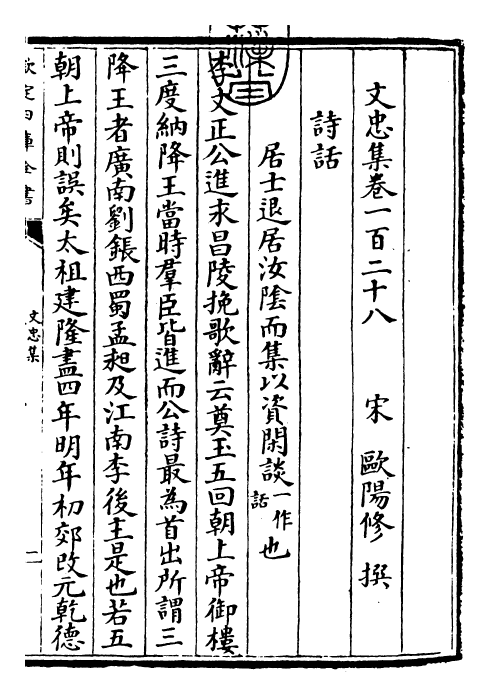 文忠集卷一百二十八　宋　歐陽修　撰
詩話
居士退居汝陰而集以資閑談一作話也
李文正公進永昌陵挽歌辭云奠玉五回朝上帝御樓
三度納降王當時羣臣皆進而公詩最為首出所謂三
降王者廣南劉鋹西蜀孟昶及江南李後主是也若五
朝上帝則誤矣太祖建隆盡四年明年初郊改元乾德
欽定四庫全書
文忠集